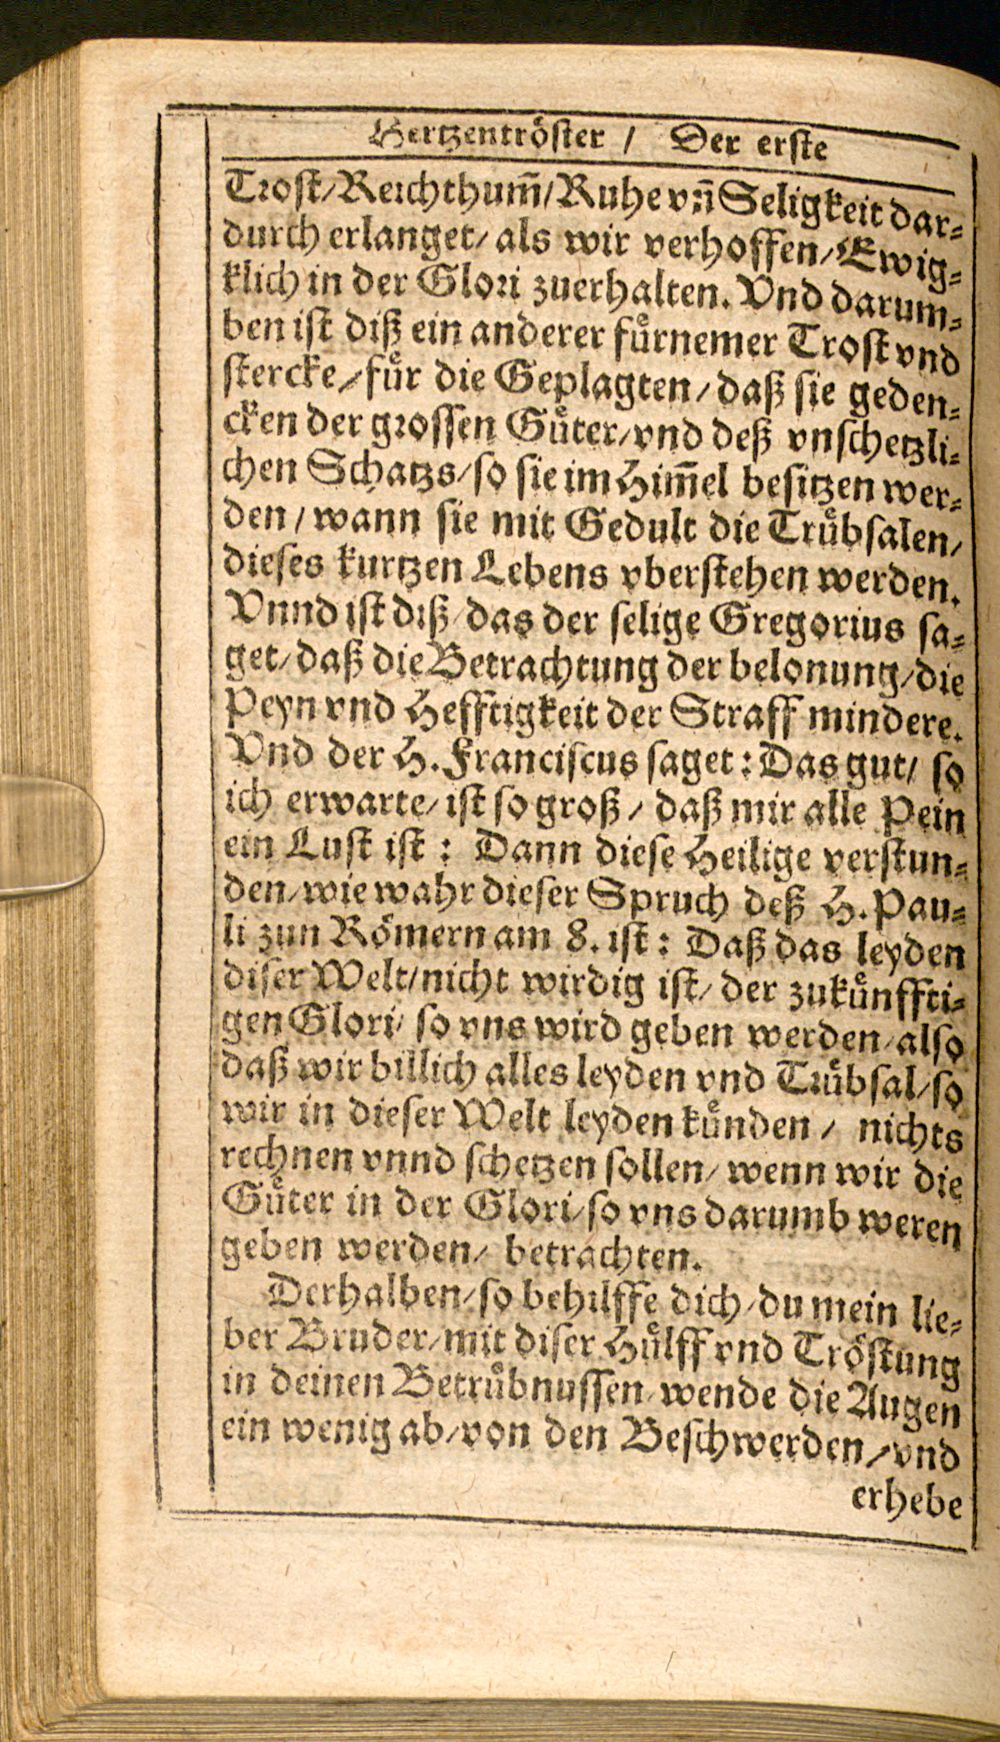 Hertzentröster / Der erste
Trost/Reichthum̃/Ruhe vñ Seligkeit dar⸗
durch erlanget/ als wir verhoffen/Ewig⸗
klich in der Glori zuerhalten. Vnd darum⸗
ben ist diß ein anderer fuͤrnemer Trost vnd
stercke/fuͤr die Geplagten/daß sie geden⸗
cken der grossen Guͤter/vnd deß vnschetzli⸗
chen Schatzs/so sie im Him̃el besitzen wer⸗
den/wann sie mit Gedult die Truͤbsalen/
dieses kurtzen Lebens vberstehen werden.
Vnnd ist diß/das der selige Gregorius sa⸗
get/daß die Betrachtung der belonung/die
Peyn vnd Hefftigkeit der Straff mindere.
Vnd der H. Franciscus saget: Das gut/ so
ich erwarte/ist so groß/daß mir alle Pein
ein Lust ist: Dann diese Heilige verstun⸗
den/wie wahr dieser Spruch deß H. Pau⸗
li zun Römern am 8. ist: Daß das leyden
diser Welt/nicht wirdig ist/der zukuͤnffti⸗
gen Glori/ so vns wird geben werden/also
daß wir billich alles leyden vnd Truͤbsal/so
wir in dieser Welt leyden kuͤnden / nichts
rechnen vnnd schetzen sollen/wenn wir die
Guͤter in der Glori/so vns darumb weren
geben werden/ betrachten.
Derhalben/so behilffe dich/du mein lie⸗
ber Bruder/mit diser Huͤlff vnd Tröstung
in deinen Betruͤbnussen/wende die Augen
ein wenig ab/von den Beschwerden/vnd
erhebe